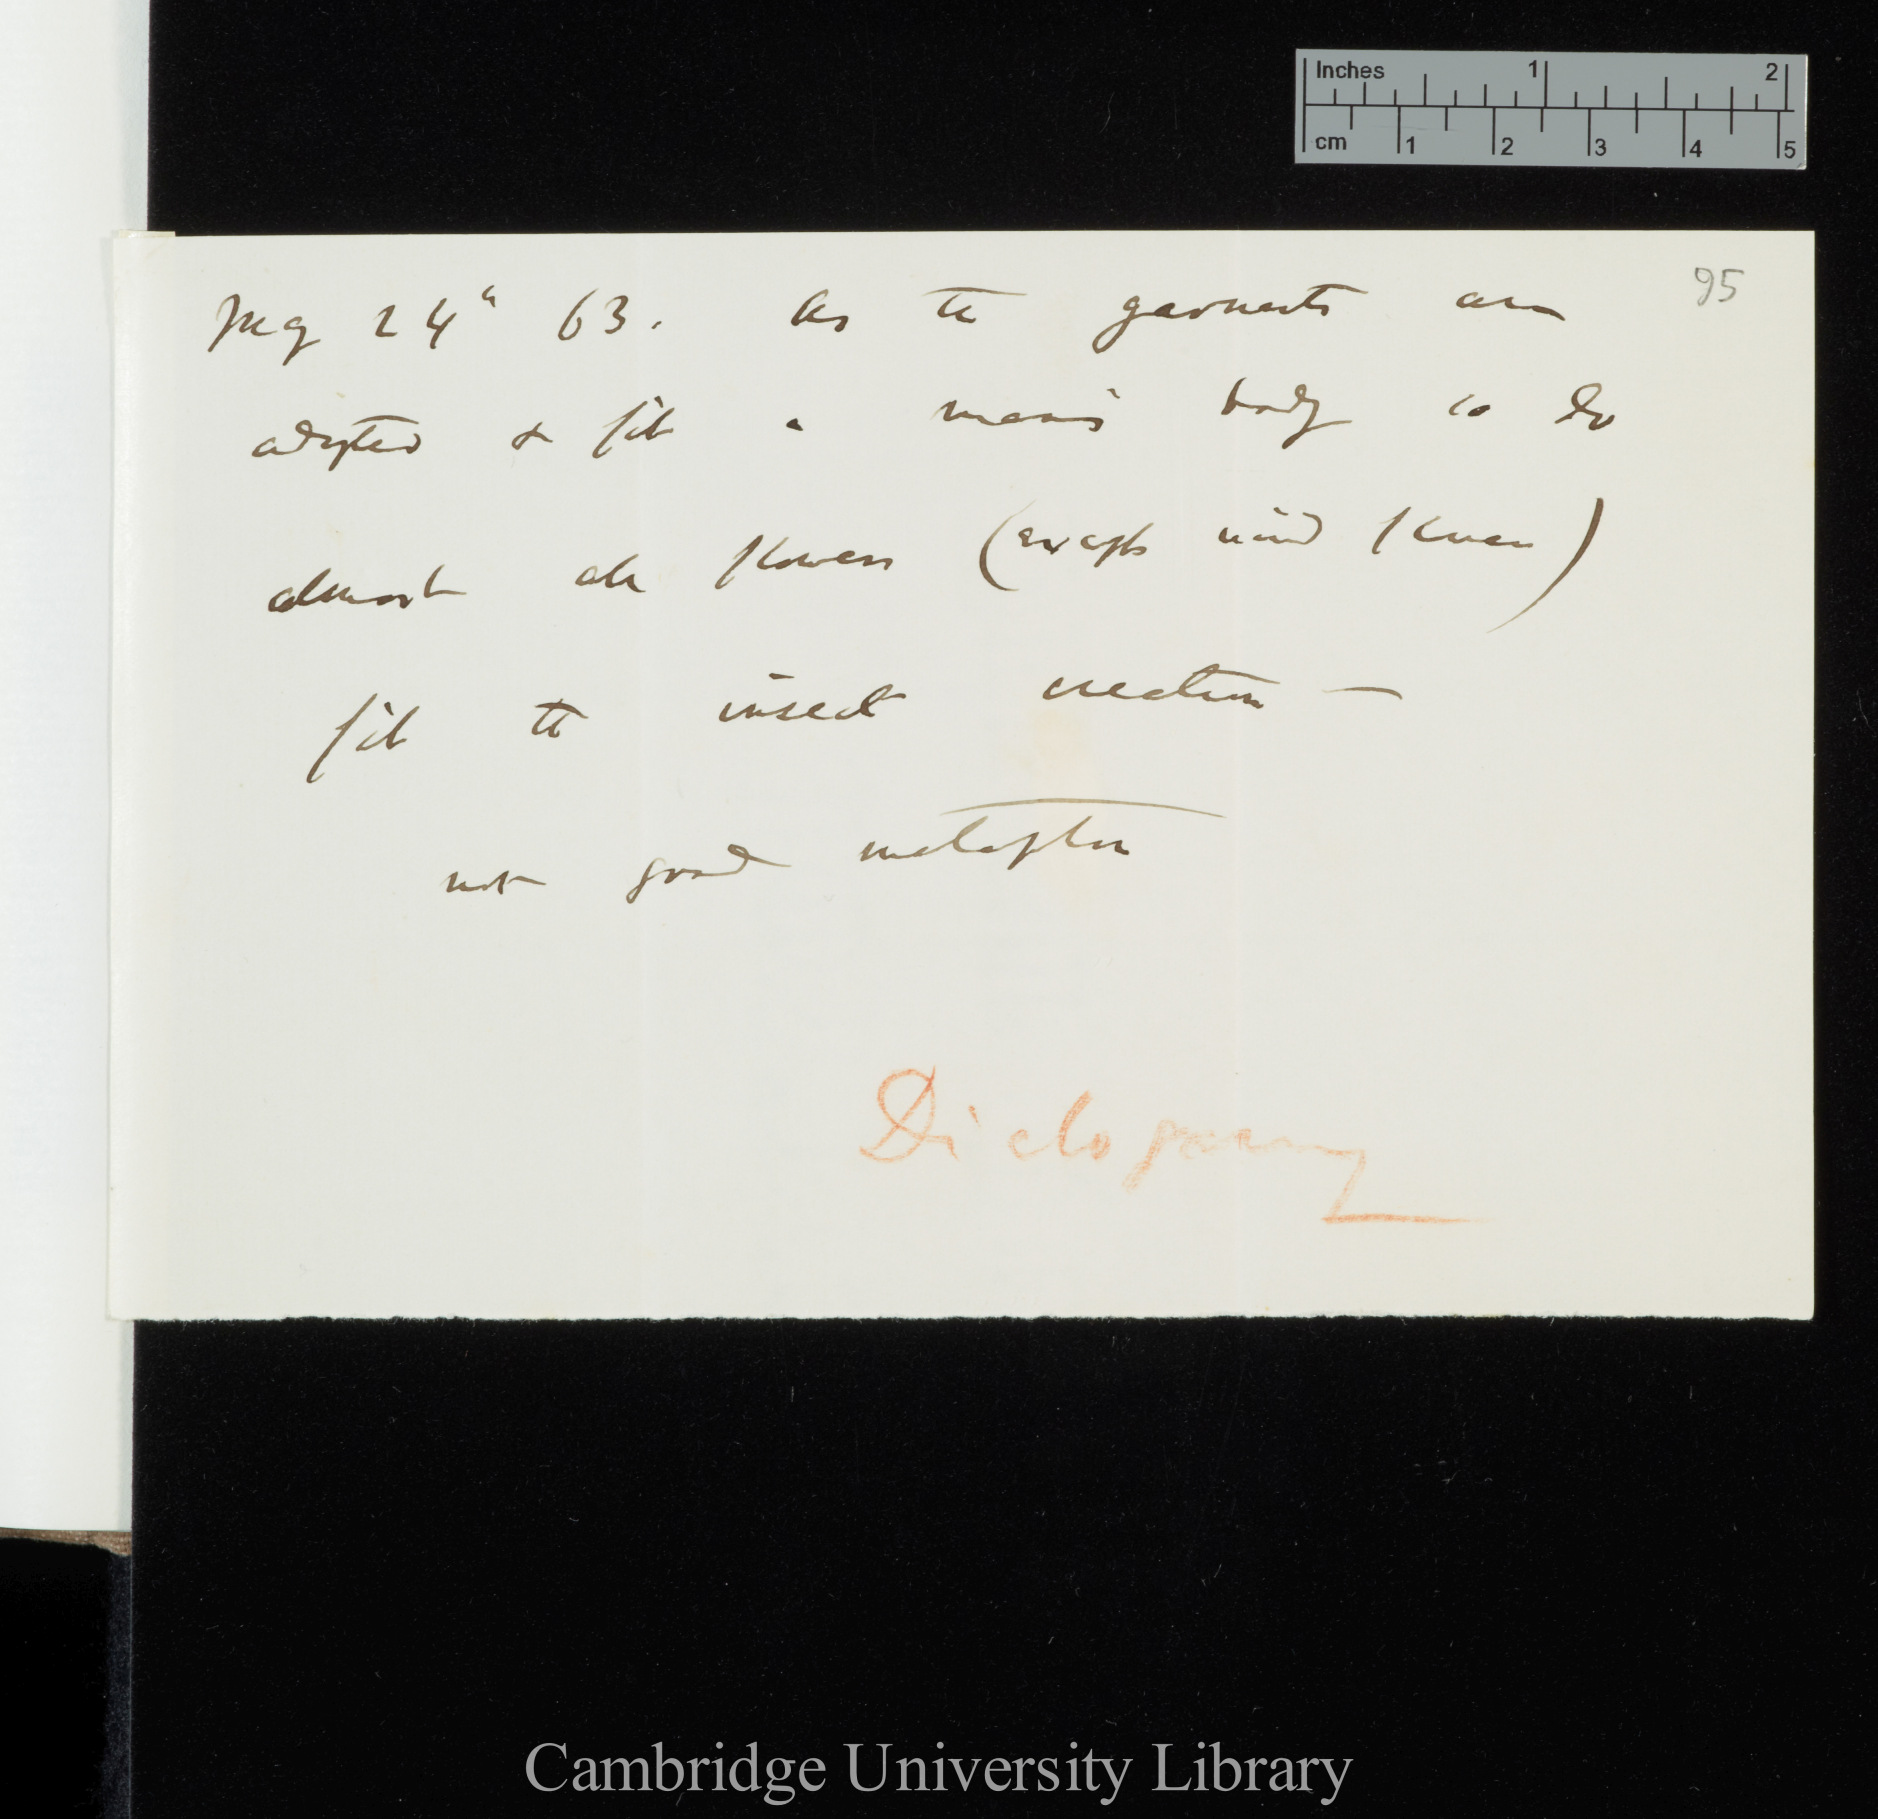 Inches 1 2
cm 1 2 3 4 5
95
May 24th 63. As the garments are
adapted & fit a man's body so do
almost all flowers (except wind flowers)
fit the insect creation —
not good metaphor
Dichogamy
Cambridge University Library